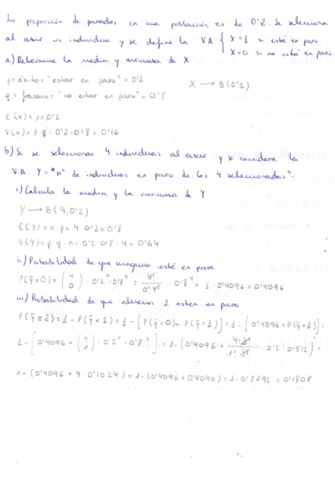 La proporción de parados en una población es de 0'2. Se selecciona
al azar un individuo y se define la V.A { X=1 si está en paro
X=0 si no está en paro
a) Determine la media y varianza de X
p = éxito: "estar en paro" = 0'2
X → B(0'2)
q = fracaso: "no estar en paro" = 0'8
E(x) = p = 0'2
V(x) = p·q = 0'2·0'8 = 0'16
b) Si se seleccionan 4 individuos al azar y se considera la
V.A. Y = "nº de individuos en paro de los 4 seleccionados".
i) Calcula la media y la varianza de Y
Y → B(4, 0'2)
E(Y) = n·p = 4·0'2 = 0'8
V(Y) = p·q·n = 0'2·0'8·4 = 0'64
ii) Probabilidad de que ninguno esté en paro
P(Y=0) = (4 0) · 0'2⁰ · 0'8⁴ = 4!/0!4! · 0'8⁴ = 1 · 0'4096 = 0'4096
iii) Probabilidad de que al menos 2 estén en paro
P(Y≥2) = 1 - P(Y<2) = 1 - [P(Y=0) + P(Y=1)] = 1 - [0'4096 + P(Y=1)] =
1 - [0'4096 + (4 1) · 0'2¹ · 0'8³] = 1 - (0'4096 + 4·3!/1!·3! · 0'2 · 0'512) =
1 - (0'4096 + 4 · 0'1024) = 1 - (0'4096 + 0'4096) = 1 - 0'8192 = 0'1808